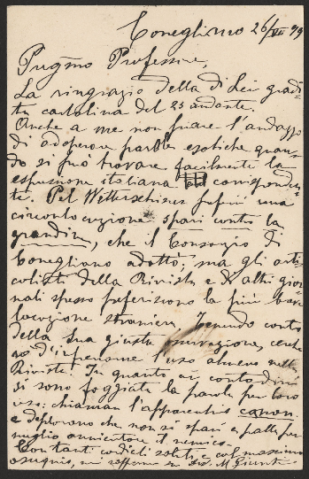 Conegliano 26/VII 99
Pregmo Professore,
La ringrazio della di Lei gradi-
ta cartolina del 23 andante.
Anche a me non piace l'andazzo
di adoperare parole esotiche quan-
do si può trovare facilmente la
espressione italiana corrisponden-
te. Pel Wetterschiessen fu una
circonlocuzione spari contro la
grandine, che il Consorzio di
Conegliano adottò, ma gli arti-
colisti della Rivista e d'altri gior-
nali spesso preferiscono la più
locuzione straniera. Tenendo conto
della Sua giusta osservazione, cerche-
rò d'imporne l'uso almeno nella
Rivista. In quanto ai contadini
si sono foggiata la parola per loro
uso: chiaman l'apparecchio canon
e deplorano che non si spari a palla per
meglio annientare il nemico.
Con tanti cordiali saluti e col massimo
ossequio, mi raffermo